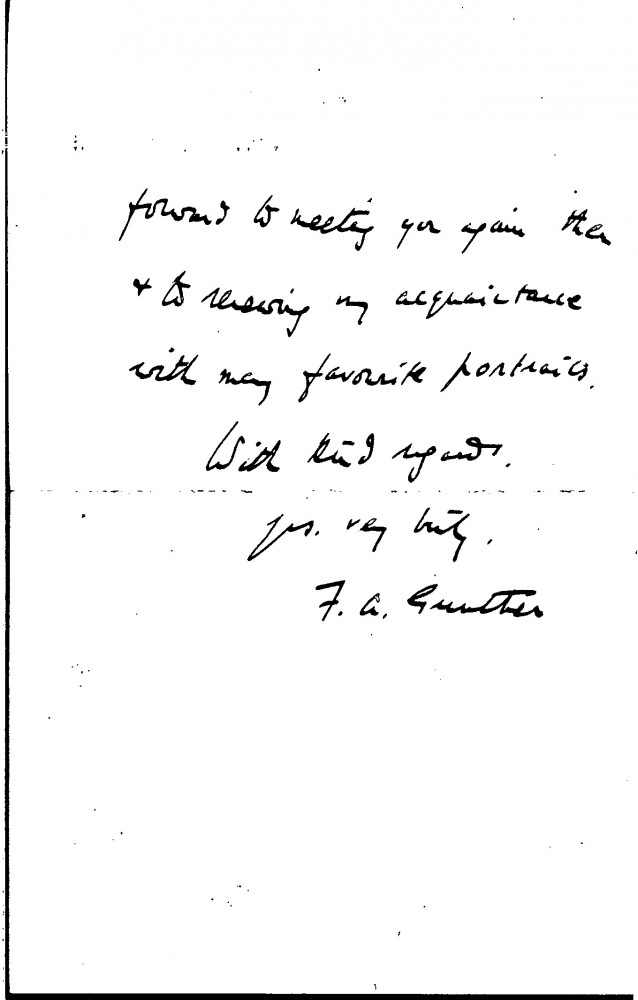 forward to meeting you again then
& to renewing my acquaintance
with many favourite portraits.
With kind regards.
yrs. very truly.
F. A. Gunther